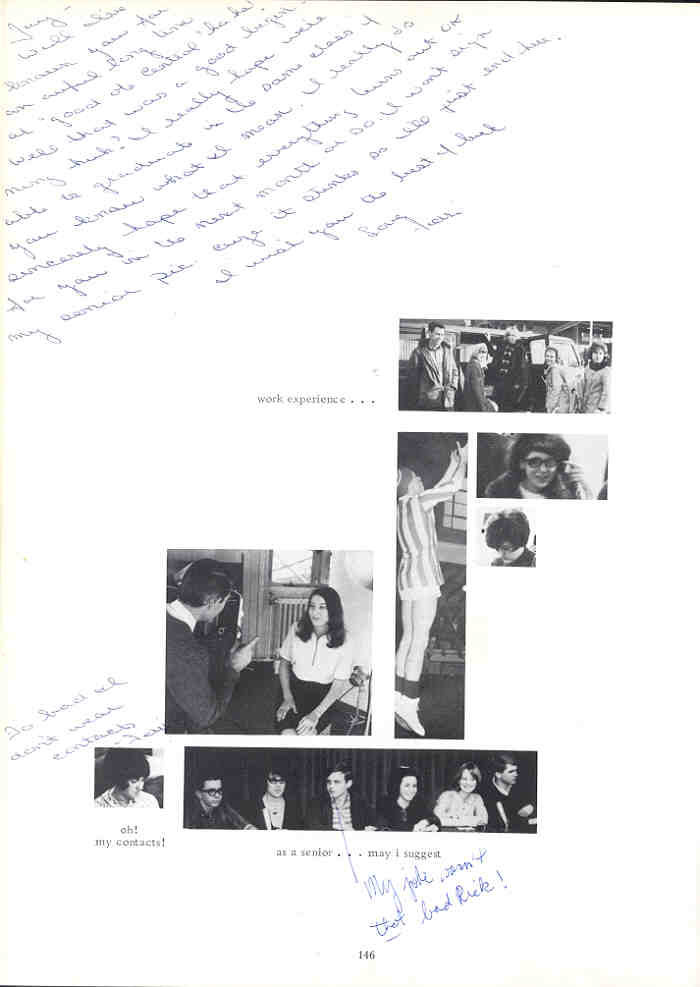 Well I've
known you for
an awful long time
at "good ole Central "haha!
Well that was a good begin-
ning huh? I really hope we're
able to graduate in the same class if
you know what I mean. I really do
sincerely hope that everything turns out OK
for you in the next month or so. I won't sign
my senior pic cuze it stinks so I'll just end here.
I wish you the best of luck
Love
Tari
work experience . . .
To bad I
don't wear
contacts
- Tari
oh!
my contacts!
as a senior . . . may i suggest
My joke wasn't
that bad Rick!
146